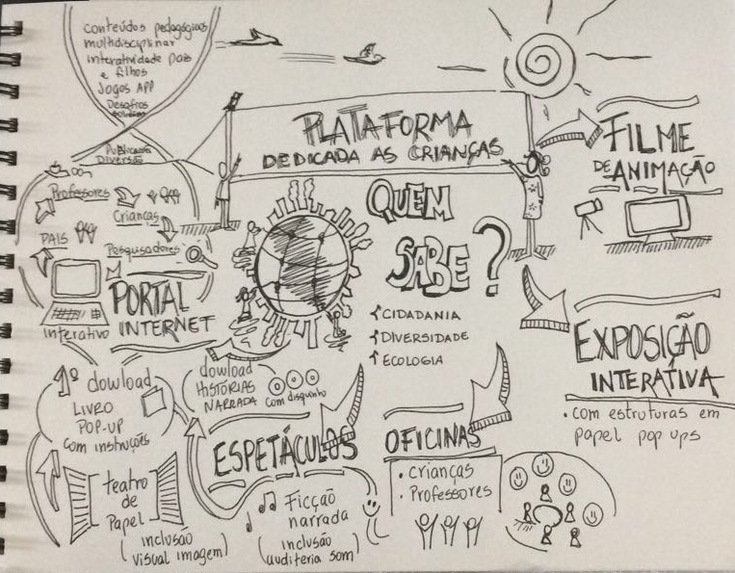 conteúdos pedagógicos
multidisciplinar
interatividade pais
e filhos
Jogos APP
Desafios
Publicação
Diversão
PLATAFORMA
DEDICADA AS CRIANÇAS
FILME
DE ANIMAÇÃO
Professores
Crianças
PAIS
Pesquisadores
PORTAL
INTERNET
interativo
QUEM
SABE?
CIDADANIA
DIVERSIDADE
ECOLOGIA
EXPOSIÇÃO
INTERATIVA
• com estruturas em
papel pop ups
1º dowload
LIVRO
POP-UP
com instruções
dowload
HISTÓRIAS
NARRADA com disquinho
ESPETÁCULOS
OFICINAS
• Crianças
• Professores
teatro
de
Papel
(inclusão
visual imagem)
Ficção
narrada
(inclusão
auditeria som)